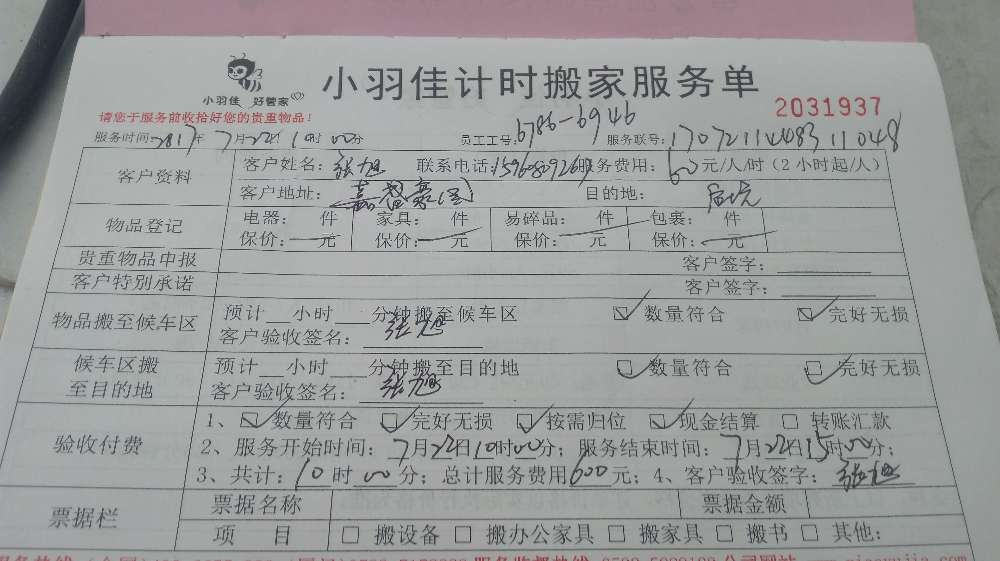 小羽佳 好管家
小羽佳计时搬家服务单
2031937
请您于服务前收拾好您的贵重物品!
服务时间:2017年7月22日10时00分 员工工号:6786-6946 服务联号:170721144083 11048
客户资料 客户姓名:张旭 联系电话: 服务费用:60元/人/时(2小时起/人)
客户地址: 目的地:
物品登记 电器: 件 家具: 件 易碎品: 件 包裹: 件
保价: 元 保价: 元 保价: 元 保价: 元
贵重物品申报 客户签字:
客户特别承诺 客户签字:
物品搬至候车区 预计__小时___分钟搬至候车区 ☑数量符合 ☑完好无损
客户验收签名:张旭
候车区搬至目的地 预计__小时___分钟搬至目的地 ☑数量符合 ☑完好无损
客户验收签名:张旭
验收付费 1、☑数量符合 ☑完好无损 ☑按需归位 ☑现金结算 □转账汇款
2、服务开始时间:7月22日10时00分;服务结束时间:7月22日15时00分;
3、共计:10时00分;总计服务费用600元;4、客户验收签字:张旭
票据栏 票据名称 票据金额
项 目 □搬设备 □搬办公家具 □搬家具 □搬书 □其他: